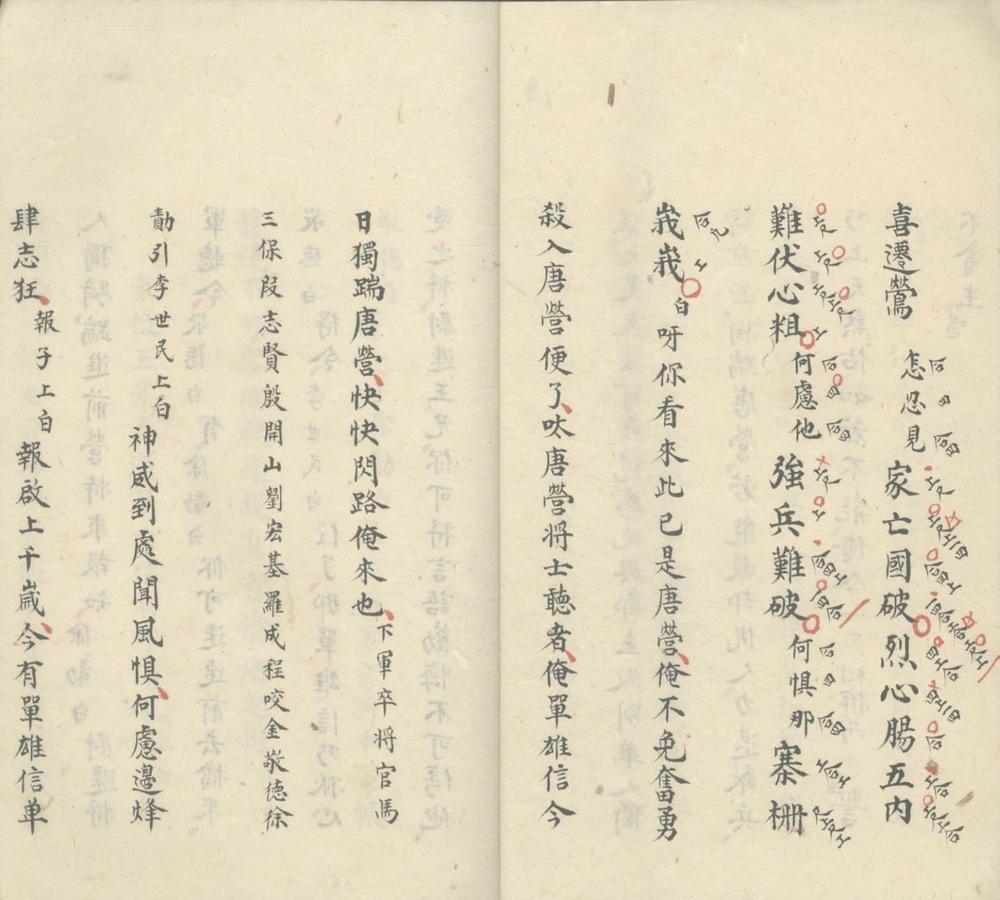 喜遷鶯 怎忍見家亡國破烈心腸五內
難伏心粗何慮他強兵難破何懼那寨柵
峩峩白呀你看來此已是唐營俺不免奮勇
殺入唐營便了呔唐營將士聽者俺單雄信今
日獨踹唐營快快閃路俺來也下軍卒將官馬
三保段志賢殷開山劉宏基羅成程咬金敬德徐
勣引李世民上白神威到處聞風惧何慮邊烽
肆志狂報子上白報啟上千歲今有單雄信单